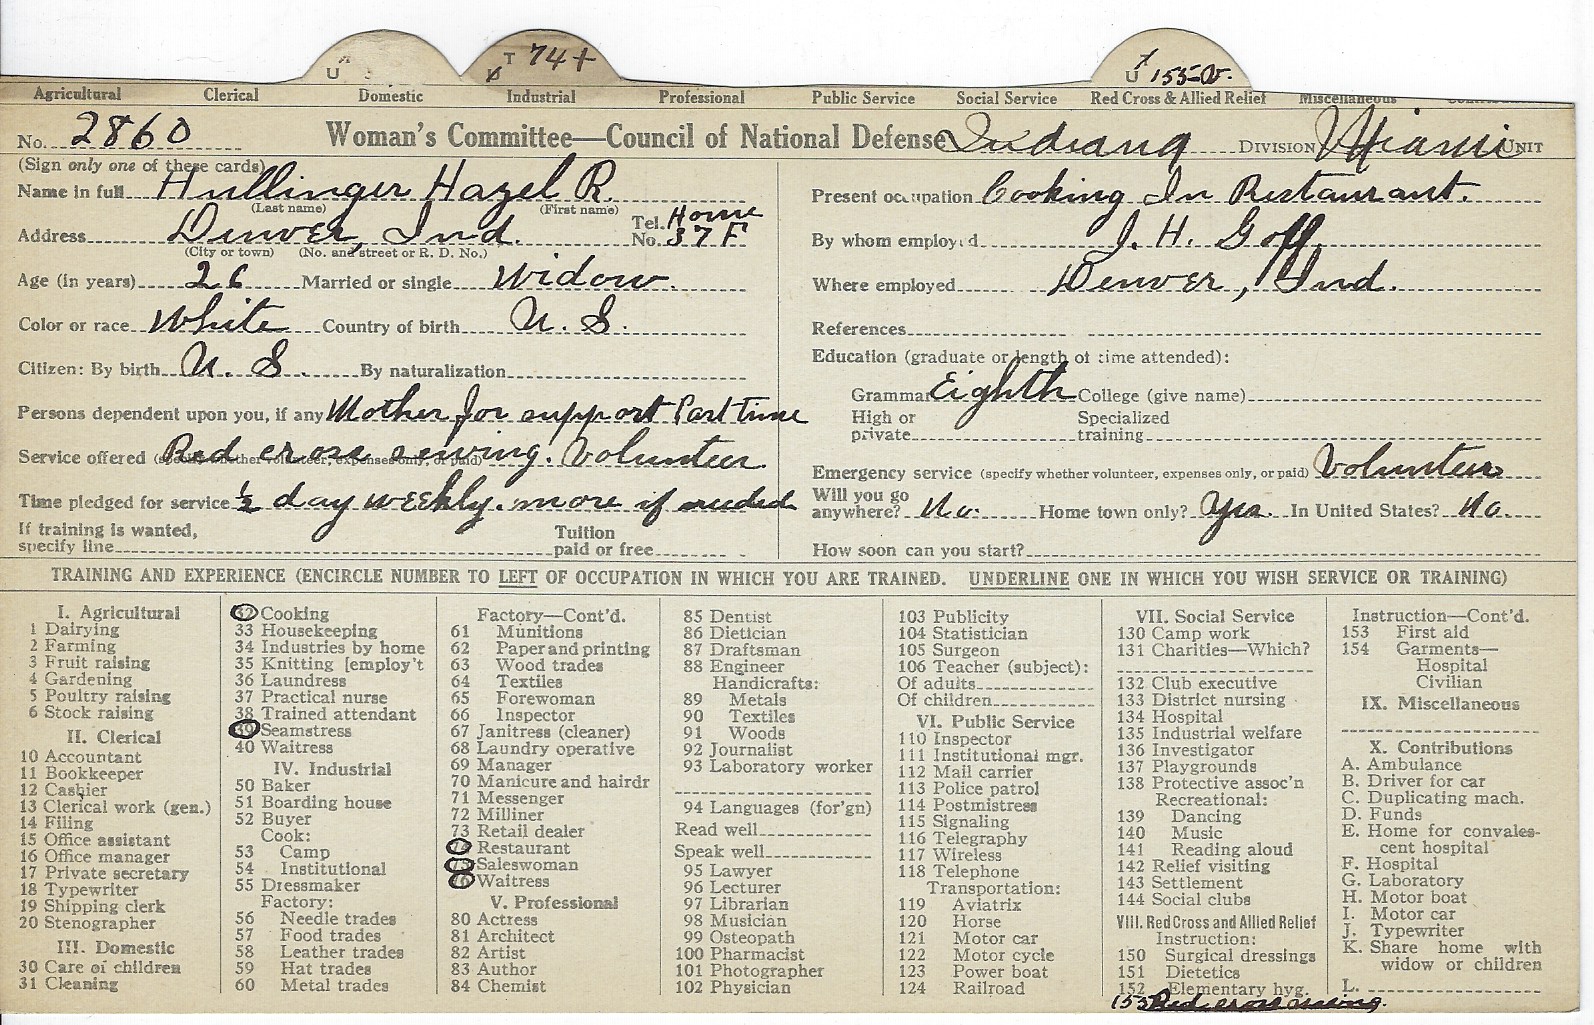 U
T 74+
U 155-V.
Agricultural Clerical Domestic Industrial Professional Public Service Social Service Red Cross & Allied Relief Miscellaneous
No. 2860 Woman's Committee—Council of National Defense Indiana DIVISION Miami UNIT
(Sign only one of these cards)
Name in full Hullinger Hazel R.
(Last name) (First name)
Address Denver, Ind. Tel. No. Home 37 F
(City or town) (No. and street or R. D. No.)
Age (in years) 26 Married or single Widow.
Color or race White Country of birth U. S.
Citizen: By birth U. S. By naturalization
Persons dependent upon you, if any Mother for support Part time
Service offered (specify whether volunteer, expenses only, or paid) Red cross sewing. Volunteer
Time pledged for service ½ day weekly. more if needed
If training is wanted, specify line Tuition paid or free
Present occupation Cooking In Restaurant.
By whom employed J. H. Goff.
Where employed Denver, Ind.
References
Education (graduate or length of time attended):
Grammar Eighth College (give name)
High or private Specialized training
Emergency service (specify whether volunteer, expenses only, or paid) Volunteer
Will you go anywhere? No. Home town only? Yes. In United States? No.
How soon can you start?
TRAINING AND EXPERIENCE (ENCIRCLE NUMBER TO LEFT OF OCCUPATION IN WHICH YOU ARE TRAINED. UNDERLINE ONE IN WHICH YOU WISH SERVICE OR TRAINING)
I. Agricultural
1 Dairying
2 Farming
3 Fruit raising
4 Gardening
5 Poultry raising
6 Stock raising
II. Clerical
10 Accountant
11 Bookkeeper
12 Cashier
13 Clerical work (gen.)
14 Filing
15 Office assistant
16 Office manager
17 Private secretary
18 Typewriter
19 Shipping clerk
20 Stenographer
III. Domestic
30 Care of children
31 Cleaning
32 Cooking
33 Housekeeping
34 Industries by home
35 Knitting [employ't
36 Laundress
37 Practical nurse
38 Trained attendant
39 Seamstress
40 Waitress
IV. Industrial
50 Baker
51 Boarding house
52 Buyer
Cook:
53 Camp
54 Institutional
55 Dressmaker
Factory:
56 Needle trades
57 Food trades
58 Leather trades
59 Hat trades
60 Metal trades
Factory—Cont'd.
61 Munitions
62 Paper and printing
63 Wood trades
64 Textiles
65 Forewoman
66 Inspector
67 Janitress (cleaner)
68 Laundry operative
69 Manager
70 Manicure and hairdr
71 Messenger
72 Milliner
73 Retail dealer
74 Restaurant
75 Saleswoman
76 Waitress
V. Professional
80 Actress
81 Architect
82 Artist
83 Author
84 Chemist
85 Dentist
86 Dietician
87 Draftsman
88 Engineer
Handicrafts:
89 Metals
90 Textiles
91 Woods
92 Journalist
93 Laboratory worker
94 Languages (for'gn)
Read well
Speak well
95 Lawyer
96 Lecturer
97 Librarian
98 Musician
99 Osteopath
100 Pharmacist
101 Photographer
102 Physician
103 Publicity
104 Statistician
105 Surgeon
106 Teacher (subject):
Of adults
Of children
VI. Public Service
110 Inspector
111 Institutional mgr.
112 Mail carrier
113 Police patrol
114 Postmistress
115 Signaling
116 Telegraphy
117 Wireless
118 Telephone
Transportation:
119 Aviatrix
120 Horse
121 Motor car
122 Motor cycle
123 Power boat
124 Railroad
VII. Social Service
130 Camp work
131 Charities—Which?
132 Club executive
133 District nursing
134 Hospital
135 Industrial welfare
136 Investigator
137 Playgrounds
138 Protective assoc'n
Recreational:
139 Dancing
140 Music
141 Reading aloud
142 Relief visiting
143 Settlement
144 Social clubs
VIII. Red Cross and Allied Relief
Instruction:
150 Surgical dressings
151 Dietetics
152 Elementary hyg.
155 Red cross sewing.
Instruction—Cont'd.
153 First aid
154 Garments—
Hospital
Civilian
IX. Miscellaneous
X. Contributions
A. Ambulance
B. Driver for car
C. Duplicating mach.
D. Funds
E. Home for convales-
cent hospital
F. Hospital
G. Laboratory
H. Motor boat
I. Motor car
J. Typewriter
K. Share home with
widow or children
L.